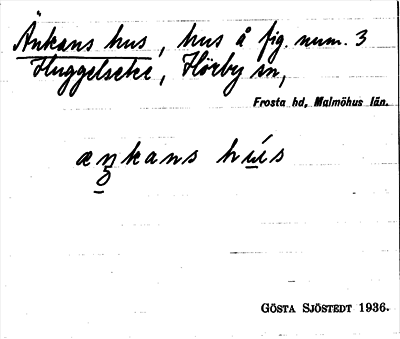 Änkans hus, hus å fig. num. 3
Huggelseke, Hörby sn,
Frosta hd, Malmöhus län.
æŋkans húu̱s
GÖSTA SJÖSTEDT 1936.